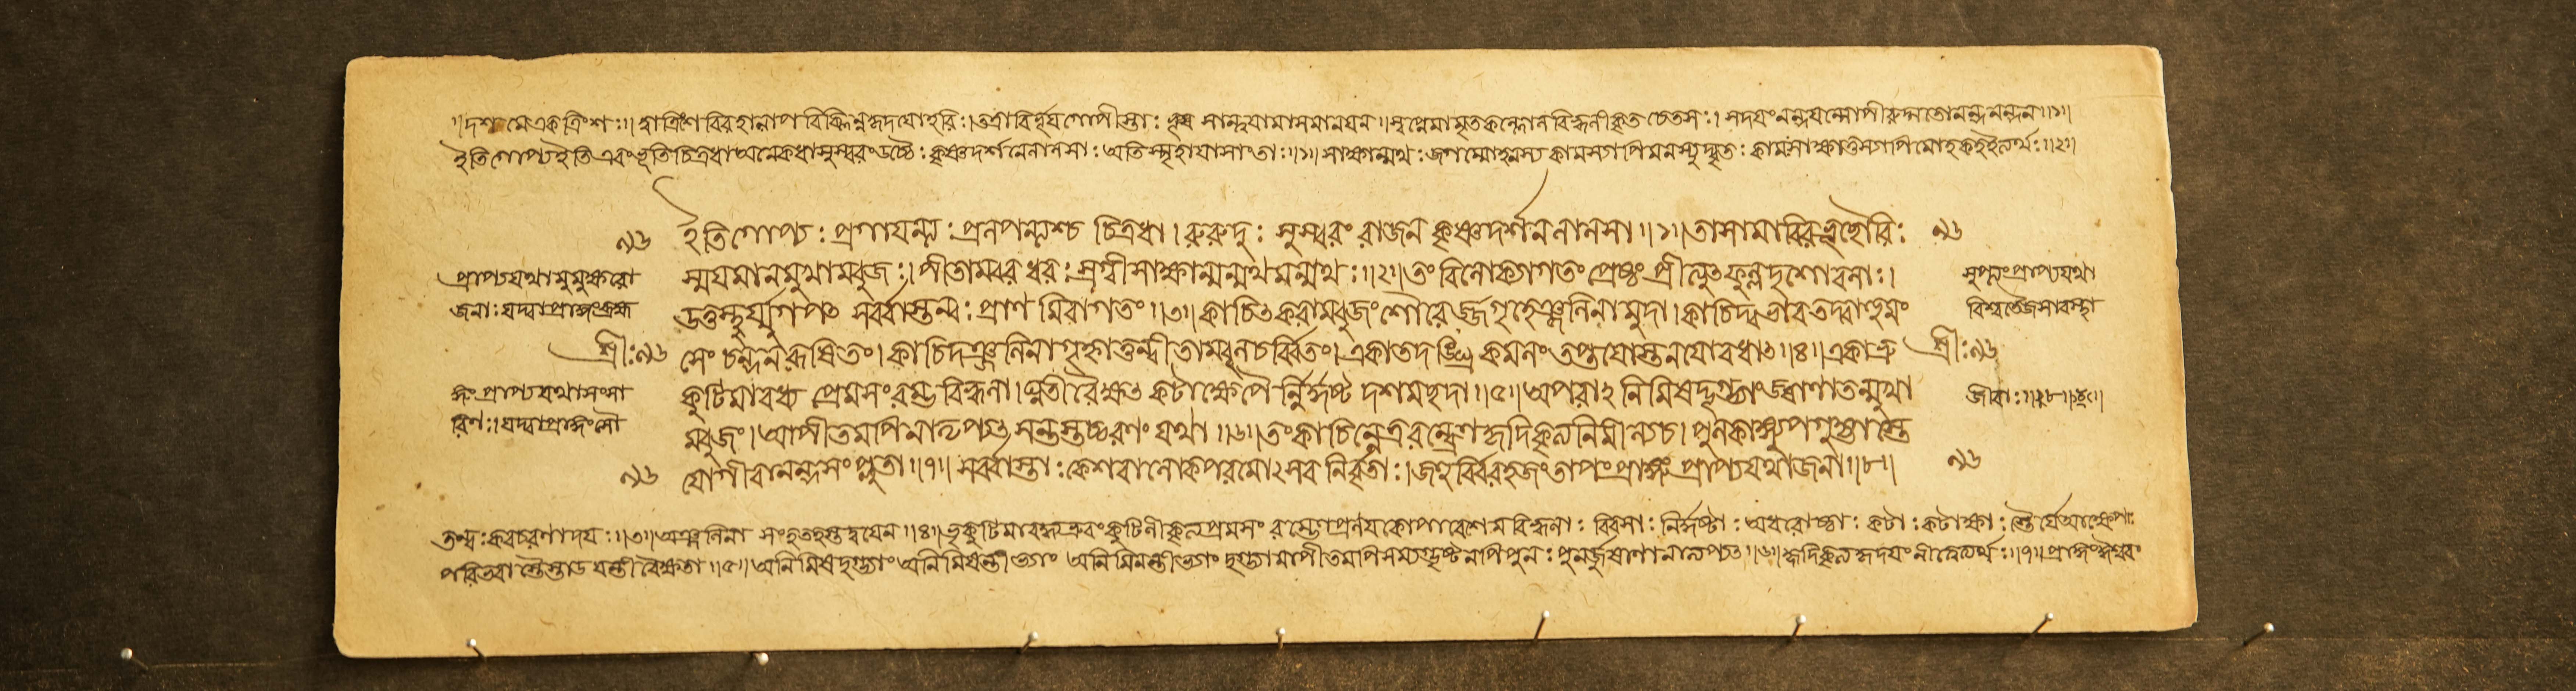 ॥দশমে একত্রিংশঃ॥ দ্বাত্রিংশে বিরহালাপ বিক্লিন্নহৃদযোহরিঃ। তত্রাবির্ভূয গোপীস্তাঃ সান্ত্বযামাস মানযন॥ স্বপ্রেমামৃতকল্লোল বিহ্বলীকৃত চেতসঃ। সদযং নন্দযন্গোপীরুদ্গতো নন্দনন্দন॥১॥
ইতি গোপ্য ইতি এবং চিত্রধা অনেকধা সুস্বরং উচ্চৈঃ কৃষ্ণদর্শনে লালসাঃ অতিস্পৃহা যাসাং তাঃ॥১॥ সাক্ষান্মথঃ জগন্মোহনস্য কামস্যাপি মনস্যুদ্ভূতঃ কামঃ সাক্ষাত্তস্যাপি মোহক ইত্যর্থঃ॥২॥
৯৬ ইতি গোপ্যঃ প্রগাযন্ত্যঃ প্রলপন্ত্যশ্চ চিত্রধা। রুরুদুঃ সুস্বরং রাজন কৃষ্ণদর্শনলালসা॥১॥ তাসামাবিরভূচ্ছৌরিঃ ৯৬
প্রাপ্য যথা মুমুক্ষবো স্মযমানমুখামবুজঃ। পীতামবরধরঃ স্রগ্বী সাক্ষান্মন্মথমন্মথঃ॥২॥ তং বিলোক্যাগতং প্রেষ্ঠং প্রীত্যুৎফুল্লদৃশোবলাঃ। সুপ্তং প্রাপ্য যথা
জনাঃ যদ্বা প্রাজ্ঞং ব্রহ্ম উত্তস্থুর্য্যুগপৎ সর্ব্বাস্তন্বঃ প্রাণমিবাগতং॥৩॥ কাচিৎ করামবুজং শৌরের্জ্জগৃহেঞ্জলিনা মুদা। কাচিদ্দধার তদ্বাহুমং বিশ্বতৈজসাবস্থা
শ্রীঃ৯৬ সেং চন্দনরূষিতং। কাচিদঞ্জলিনাগৃহ্ণাত্তন্বী তামবূলচর্ব্বিতং। একা তদঙ্ঘ্রি কমলং তপ্তা যোস্তনযোরধাৎ॥৪॥ একা ভ্রু শ্রীঃ৯৬
জ্ঞং প্রাপ্য যথা সংসা কুটিমাবধ্য প্রেমসংরম্ভ বিহ্বলা। ঘ্নতীবৈক্ষৎ কটাক্ষেপৈর্নির্দ্দষ্ট দশনছদা॥৫॥ অপরাঽনিমিষদ্দৃগ্ভ্যাং জুষাণা তন্মুখা জীবাঃ॥৮॥
রিণঃ। যদ্বা প্রাজ্ঞং সৌ মবুজং। আপীতমপি নাতৃপ্যৎ সন্তস্তচ্চরণং যথা॥৬॥ তং কাচিন্নেত্ররন্ধ্রেণ হৃদিকৃত্য নিমীল্য চ। পুলকাঙ্গ্যুপগুহ্যাস্তে
৯৬ যোগীবানন্দসংপ্লুতা॥৭॥ সর্ব্বাস্তাঃ কেশবালোকপরমোঽসব নির্বৃতাঃ। জহুর্বিরহজং তাপং প্রাজ্ঞং প্রাপ্য যথা জনা॥৮॥ ৯৬
তন্বঃ করচরণাদযঃ॥৩॥ অঞ্জলিনা সংহতহস্তদ্বযেন॥৪॥ ভ্রূকুটিমাবধ্য ভ্রুবং কুটিলীকৃত্য প্রেমসংরম্ভেণ প্রণযকোপাবেশেন বিহ্বলাঃ বিবশাঃ নির্দ্দষ্টাঃ অধরোষ্ঠাঃ কটাঃ কটাক্ষাঃ তৈর্যে আক্ষেপাঃ
পরিভবা স্তৈস্তাডযন্তীবৈক্ষতা॥৫॥ অনিমিষদ্দৃগ্ভ্যাং অনিমিষন্তীভ্যাং অনিমিলন্তীভ্যাং দৃগ্ভ্যামাপীতমপি সম্যগ্দৃষ্টমপি পুনঃ পুনর্জুষাণা নাতৃপ্যৎ॥৬॥ হৃদিকৃত্য হৃদযং নীত্বেত্যর্থঃ॥৭॥ প্রাজ্ঞং ঈশ্বরং